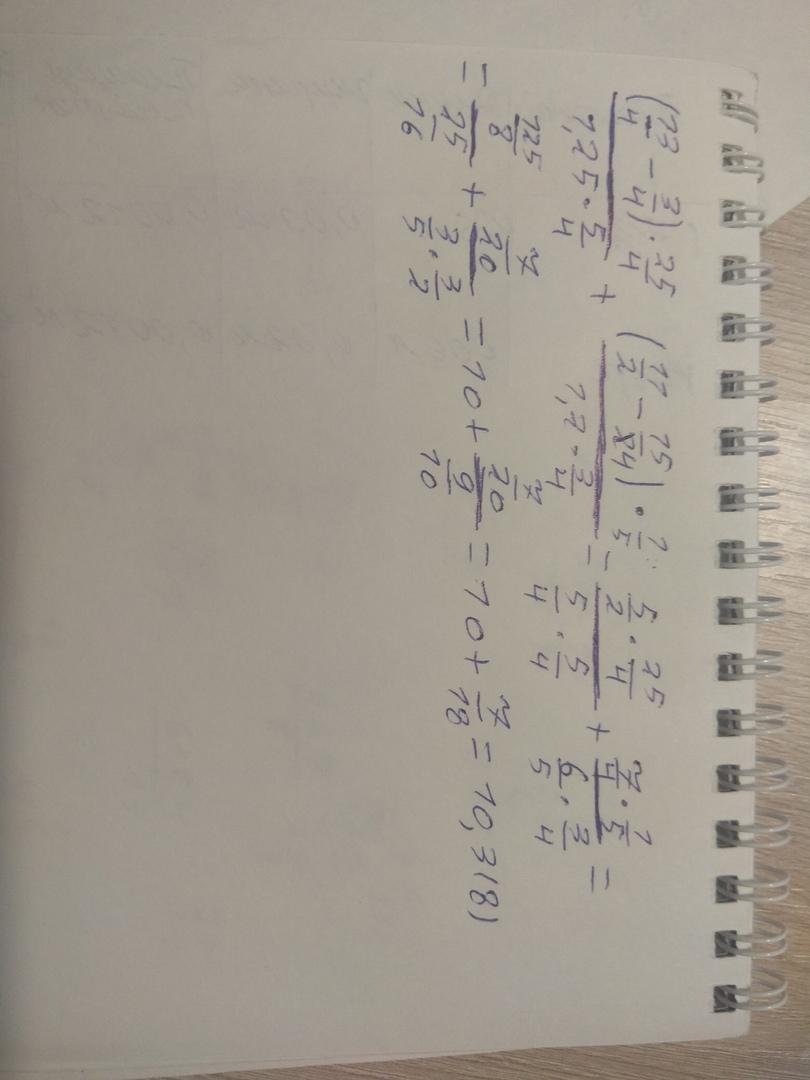 ((13/4 - 3/4) · 25/4) / (1,25 · 5/4) + ((11/2 - 15/4) · 1/5) / (1,2 · 3/4) = (5/2 · 25/4) / (5/4 · 5/4) + (7/4 · 1/5) / (6/5 · 3/4) =
= (125/8) / (25/16) + (7/20) / (3/5 · 3/2) = 10 + (7/20) / (9/10) = 10 + 7/18 = 10,3(8)